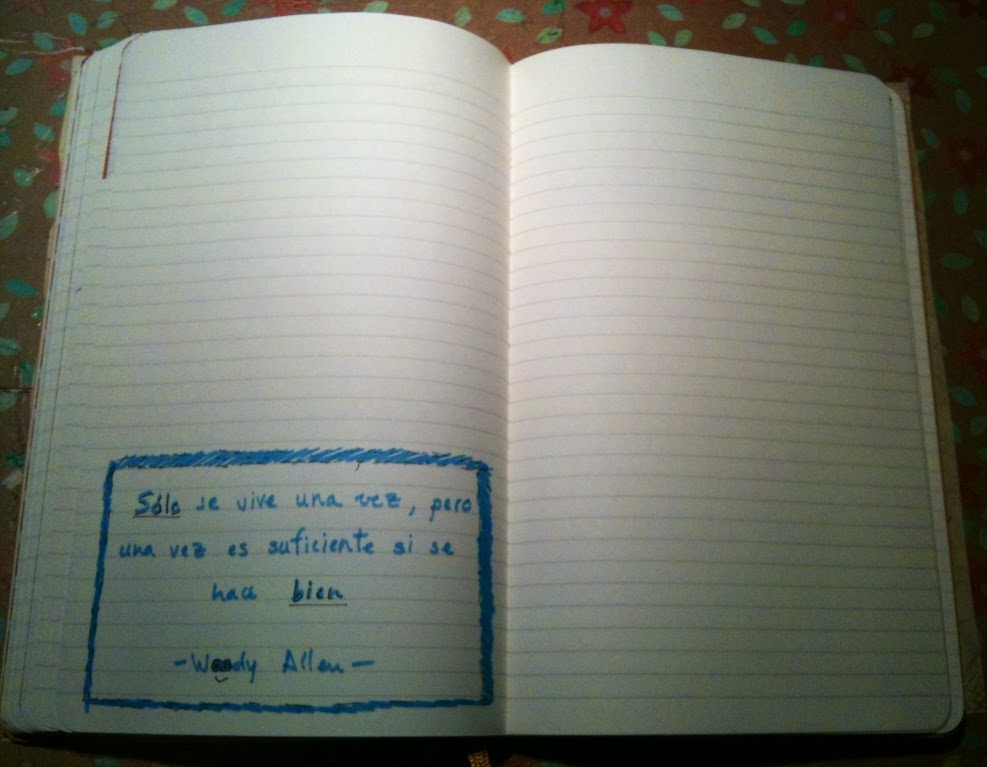 Sólo se vive una vez, pero
una vez es suficiente si se
hace bien
- Woody Allen -